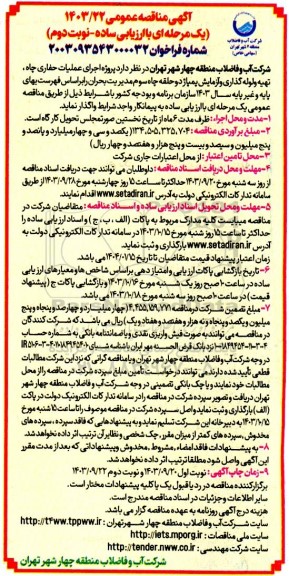 آگهی مناقصه عمومی ۱۴۰۳/۲۲
(یک مرحله ای با ارزیابی ساده - نوبت دوم)
شماره فراخوان ۲۰۰۳۰۹۳۵۴۳۰۰۰۰۳۲
شرکت آب و فاضلاب
منطقه ۴ شهر تهران
(سهامی خاص)
شرکت آب و فاضلاب منطقه چهار شهر تهران در نظر دارد پروژه اجرای عملیات حفاری چاه،
تهیه و لوله گذاری و آزمایش پمپاژ دو حلقه چاه سوم مدیریت بحران را بر اساس فهرست بهای
پایه و غیر پایه سال ۱۴۰۳ سازمان برنامه و بودجه کشور با شرایط ذیل از طریق مناقصه
عمومی یک مرحله ای با ارزیابی ساده به پیمانکار واجد شرایط واگذار نماید.
۱- مدت و محل اجرا: ظرف مدت ۶ ماه از تاریخ نخستین صورتمجلس تحویل کار گاه است.
۲- مبلغ برآوردی مناقصه: ۱۳۴,۵۰۵,۳۲۵,۷۰۴ (یکصد و سی و چهار میلیارد و پانصد و
پنج میلیون و سیصد و بیست و پنج هزار و هفتصد و چهار ریال)
۳- محل تامین اعتبار: از محل اعتبارات جاری شرکت
۴- مهلت و محل دریافت اسناد مناقصه: داوطلبان می توانند جهت دریافت اسناد مناقصه
از روز سه شنبه مورخ ۱۴۰۳/۰۹/۲۰ حداکثر تا ساعت ۱۵ روز چهارشنبه مورخ ۱۴۰۳/۰۹/۲۸ از طریق
سامانه تدارکات الکترونیکی دولت به آدرس www.setadiran.ir اقدام نمایند.
۵- مهلت و محل تحویل اسناد ارزیابی ساده و اسناد مناقصه: متقاضیان شرکت در
مناقصه میبایست کلیه مدارک مربوط به پاکات (الف، ب، ج) و اسناد ارزیابی ساده را
حداکثر تا ساعت ۱۵ روز شنبه مورخ ۱۴۰۳/۱۰/۱۵ در سامانه تدارکات الکترونیکی دولت به
آدرس www.setadiran.ir بارگذاری و ثبت نماید.
زمان اعتبار پیشنهاد قیمت متقاضیان تا تاریخ ۱۴۰۴/۰۱/۱۵ می باشد.
۶- تاریخ بازگشایی پاکات ارزیابی و امتیاز دهی بر اساس شاخص ها و معیارهای ارزیابی
ساده در ساعت ۱۰ صبح روز یک شنبه مورخ ۱۴۰۳/۱۰/۱۶ و بازگشایی پاکات ج (پیشنهاد
قیمت) در ساعت ۱۰ صبح روز سه شنبه مورخ ۱۴۰۳/۱۰/۱۸ می باشد.
۷- مبلغ تضمین شرکت در مناقصه
میلیون و یکصد و پنجاه و نه هزار و هفتصد و هفتاد و یک) ریال می باشد که شرکت کنندگان
در مناقصه می توانند به صورت فیش واریزی نقدی و یا ضمانتنامه بانکی به شماره حساب
در وجه شرکت آب و فاضلاب منطقه چهار شهر تهران و یا مناقصه گرانی که نزد این شرکت مطالبات
قطعی تأیید شده دارند می توانند درخواست تأمین مبلغ سپرده شرکت در مناقصه را از محل
مطالبات خود نمایند و یا چک بانکی تضمینی در وجه شرکت آب و فاضلاب منطقه چهار شهر
تهران دریافت و تصویر سپرده شرکت در مناقصه را در سامانه تدارکات الکترونیک دولت در پاکت
(الف) بارگذاری و ثبت نماید و اصل سپرده شرکت در مناقصه موصوف را تا ساعت ۱۵ شنبه مورخ
۱۴۰۳/۱۰/۱۵ به دبیرخانه این شرکت تسلیم نماید و به پیشنهادهایی که فاقد سپرده، سپرده های
مخدوش، سپرده های کمتر از میزان مقرر، چک شخصی و نظایر آن ترتیب اثر داده نخواهد شد.
۸- به پیشنهادات فاقد امضاء، مشروط، مخدوش و پیشنهاداتی که بعد از مدت مقرر
این آگهی واصل شود مطلقا ترتیب اثر داده نخواهد شد.
۹- زمان چاپ آگهی: نوبت اول ۱۴۰۳/۰۹/۲۰ و نوبت دوم ۱۴۰۳/۰۹/۲۲
برگزار کننده مناقصه در رد یا قبول یک یا کلیه پیشنهادات مختار است.
سایر اطلاعات و جزئیات در اسناد مناقصه مندرج است.
هزینه درج آگهی روزنامه به عهده مناقصه گزار می باشد.
سایت شرکت آب و فاضلاب منطقه چهار شهر تهران: http://t4ww.tpww.ir
سایت ملی مناقصات: http://iets.mporg.ir
سایت شرکت مهندسی: http://tender.nww.co.ir
شرکت آب و فاضلاب منطقه چهار شهر تهران